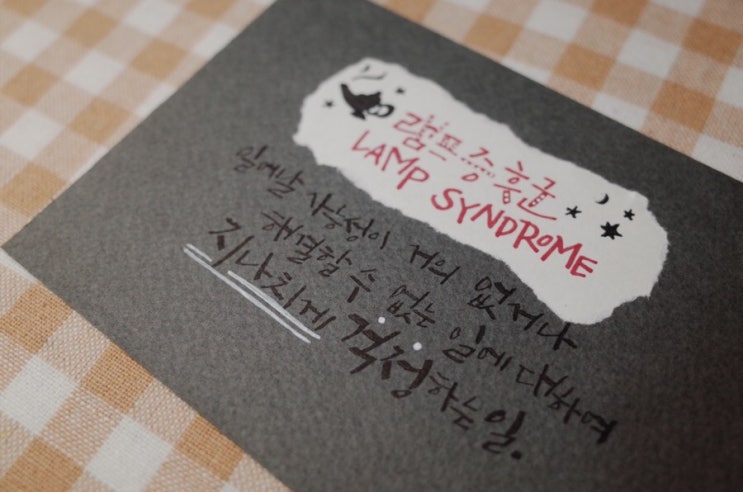 램프증후군
LAMP SYNDROME
일어날 가능성이 거의 없거나
해결할 수 없는 일에 대하여
지나치게 걱정하는 일.